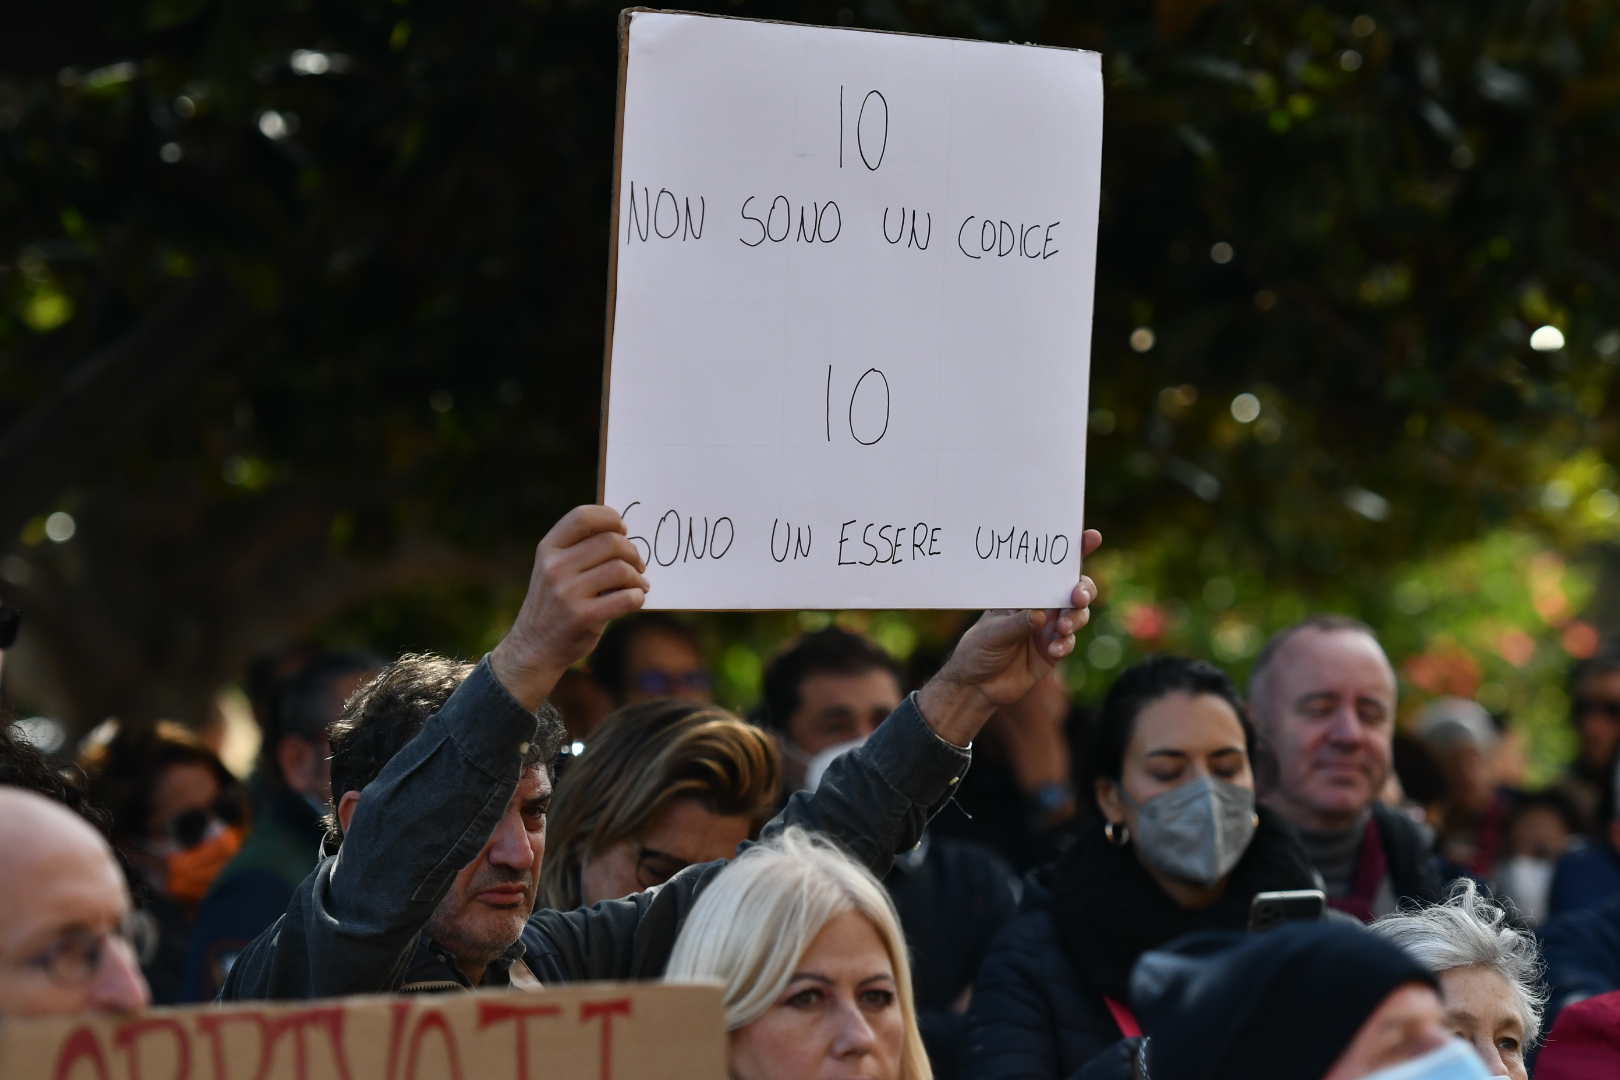 IO
NON SONO UN CODICE
IO
SONO UN ESSERE UMANO
ARRIVATI